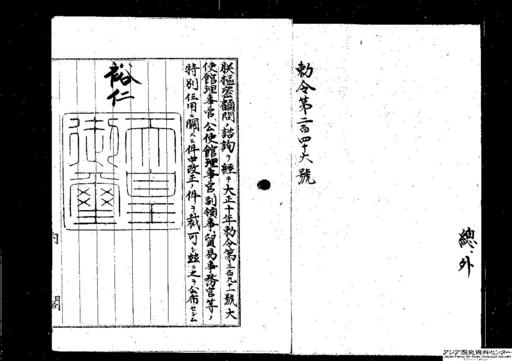 勅令第二百四十六號
總、外
朕樞密顧問ノ諮詢ヲ經テ大正十年勅令第三百九十一號大
使館理事官、公使館理事官、副領事、貿易事務官等ノ
特別任用ニ關スル件中改正ノ件ヲ裁可シ玆ニ之ヲ公布セシム
裕仁
天皇御璽
内閣
アジア歴史資料センター